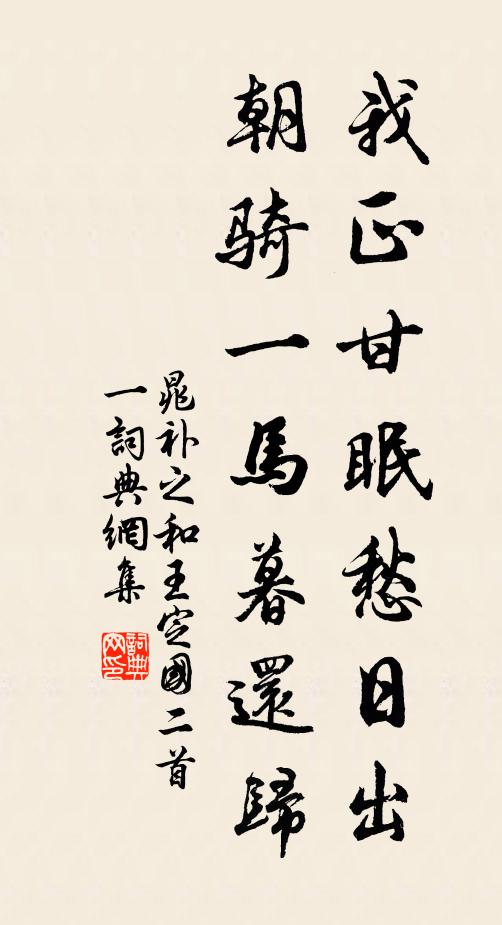 我正甘眠愁日出
朝騎一馬暮還歸
晁补之和王定國二首
一詞典網集
詞典网印